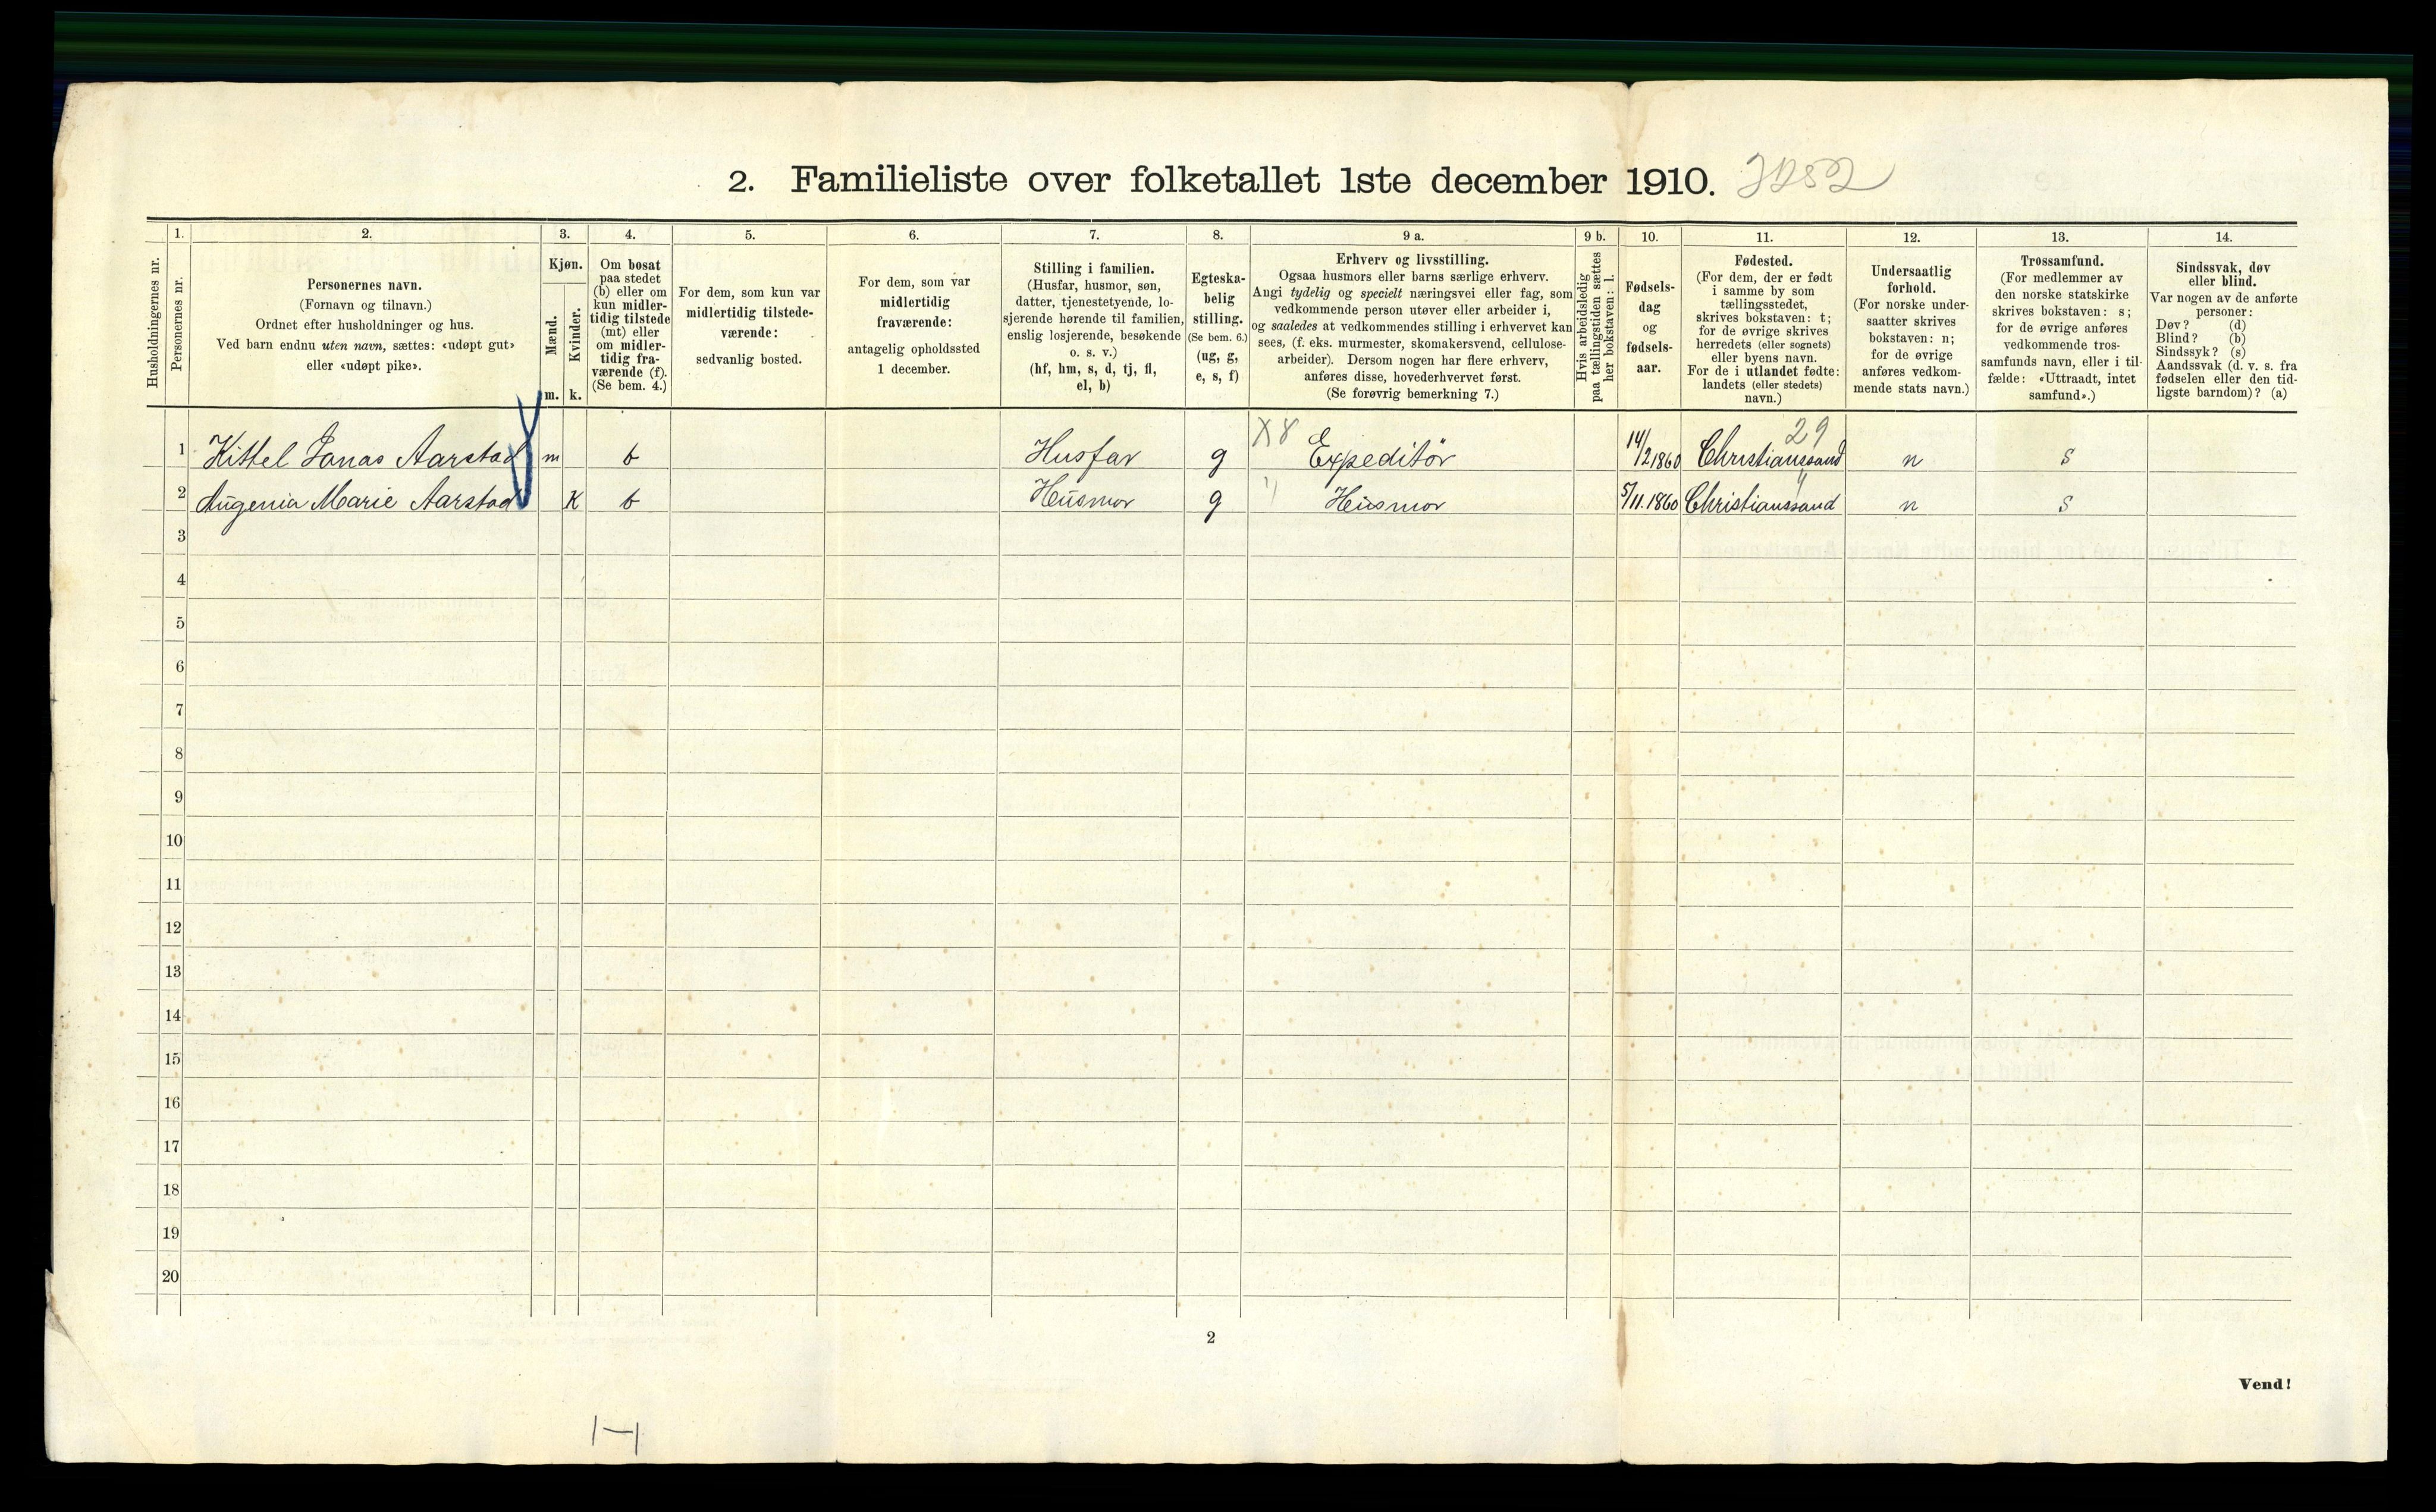 2. Familieliste over folketallet 1ste december 1910.
Husholdningernes nr.
1.
Personernes nr.
2.
Personernes navn.
(Fornavn og tilnavn.)
Ordnet efter husholdninger og hus.
Ved barn endnu uten navn, sættes: «udøpt gut»
eller «udøpt pike».
3.
Kjøn.
Mænd.
Kvinder.
m. k.
4.
Om bosat
paa stedet
(b) eller om
kun midler-
tidig tilstede
(mt) eller
om midler-
tidig fra-
værende (f).
(Se bem. 4.)
5.
For dem, som kun var
midlertidig tilstede-
værende:
sedvanlig bosted.
6.
For dem, som var
midlertidig
fraværende:
antagelig opholdssted
1 december.
7.
Stilling i familien.
(Husfar, husmor, søn,
datter, tjenestetyende, lo-
sjerende hørende til familien,
enslig losjerende, besøkende
o. s. v.)
(hf, hm, s, d, tj, fl,
el, b)
8.
Egteska-
belig
stilling.
(Se bem. 6.)
(ug, g,
e, s, f)
9 a.
Erhverv og livsstilling.
Ogsaa husmors eller barns særlige erhverv.
Angi tydelig og specielt næringsvei eller fag, som
vedkommende person utøver eller arbeider i,
og saaledes at vedkommendes stilling i erhvervet kan
sees, (f. eks. murmester, skomakersvend, cellulose-
arbeider). Dersom nogen har flere erhverv,
anføres disse, hovederhvervet først.
(Se forøvrig bemerkning 7.)
9 b.
Hvis arbeidsledig
paa tællingstiden sættes
her bokstaven: l.
10.
Fødsels-
dag
og
fødsels-
aar.
11.
Fødested.
(For dem, der er født
i samme by som
tællingsstedet,
skrives bokstaven: t;
for de øvrige skrives
herredets (eller sognets)
eller byens navn.
For de i utlandet fødte:
landets (eller stedets)
navn.)
12.
Undersaatlig
forhold.
(For norske under-
saatter skrives
bokstaven: n;
for de øvrige
anføres vedkom-
mende stats navn.)
13.
Trossamfund.
(For medlemmer av
den norske statskirke
skrives bokstaven: s;
for de øvrige anføres
vedkommende tros-
samfunds navn, eller i til-
fælde: «Uttraadt, intet
samfund».)
14.
Sindssvak, døv
eller blind.
Var nogen av de anførte
personer:
Døv? (d)
Blind? (b)
Sindssyk? (s)
Aandssvak (d. v. s. fra
fødselen eller den tid-
ligste barndom)? (a)
X8 29
1 Kittel Jonas Aarstad m b Husfar g Expeditör 14/2 1860 Christianssand n s
2 Augenia Marie Aarstad K b Husmor g Husmor 5/11.1860 Christianssand n s
3
4
5
6
7
8
9
10
11
12
13
14
15
16
17
18
19
20
2
Vend!